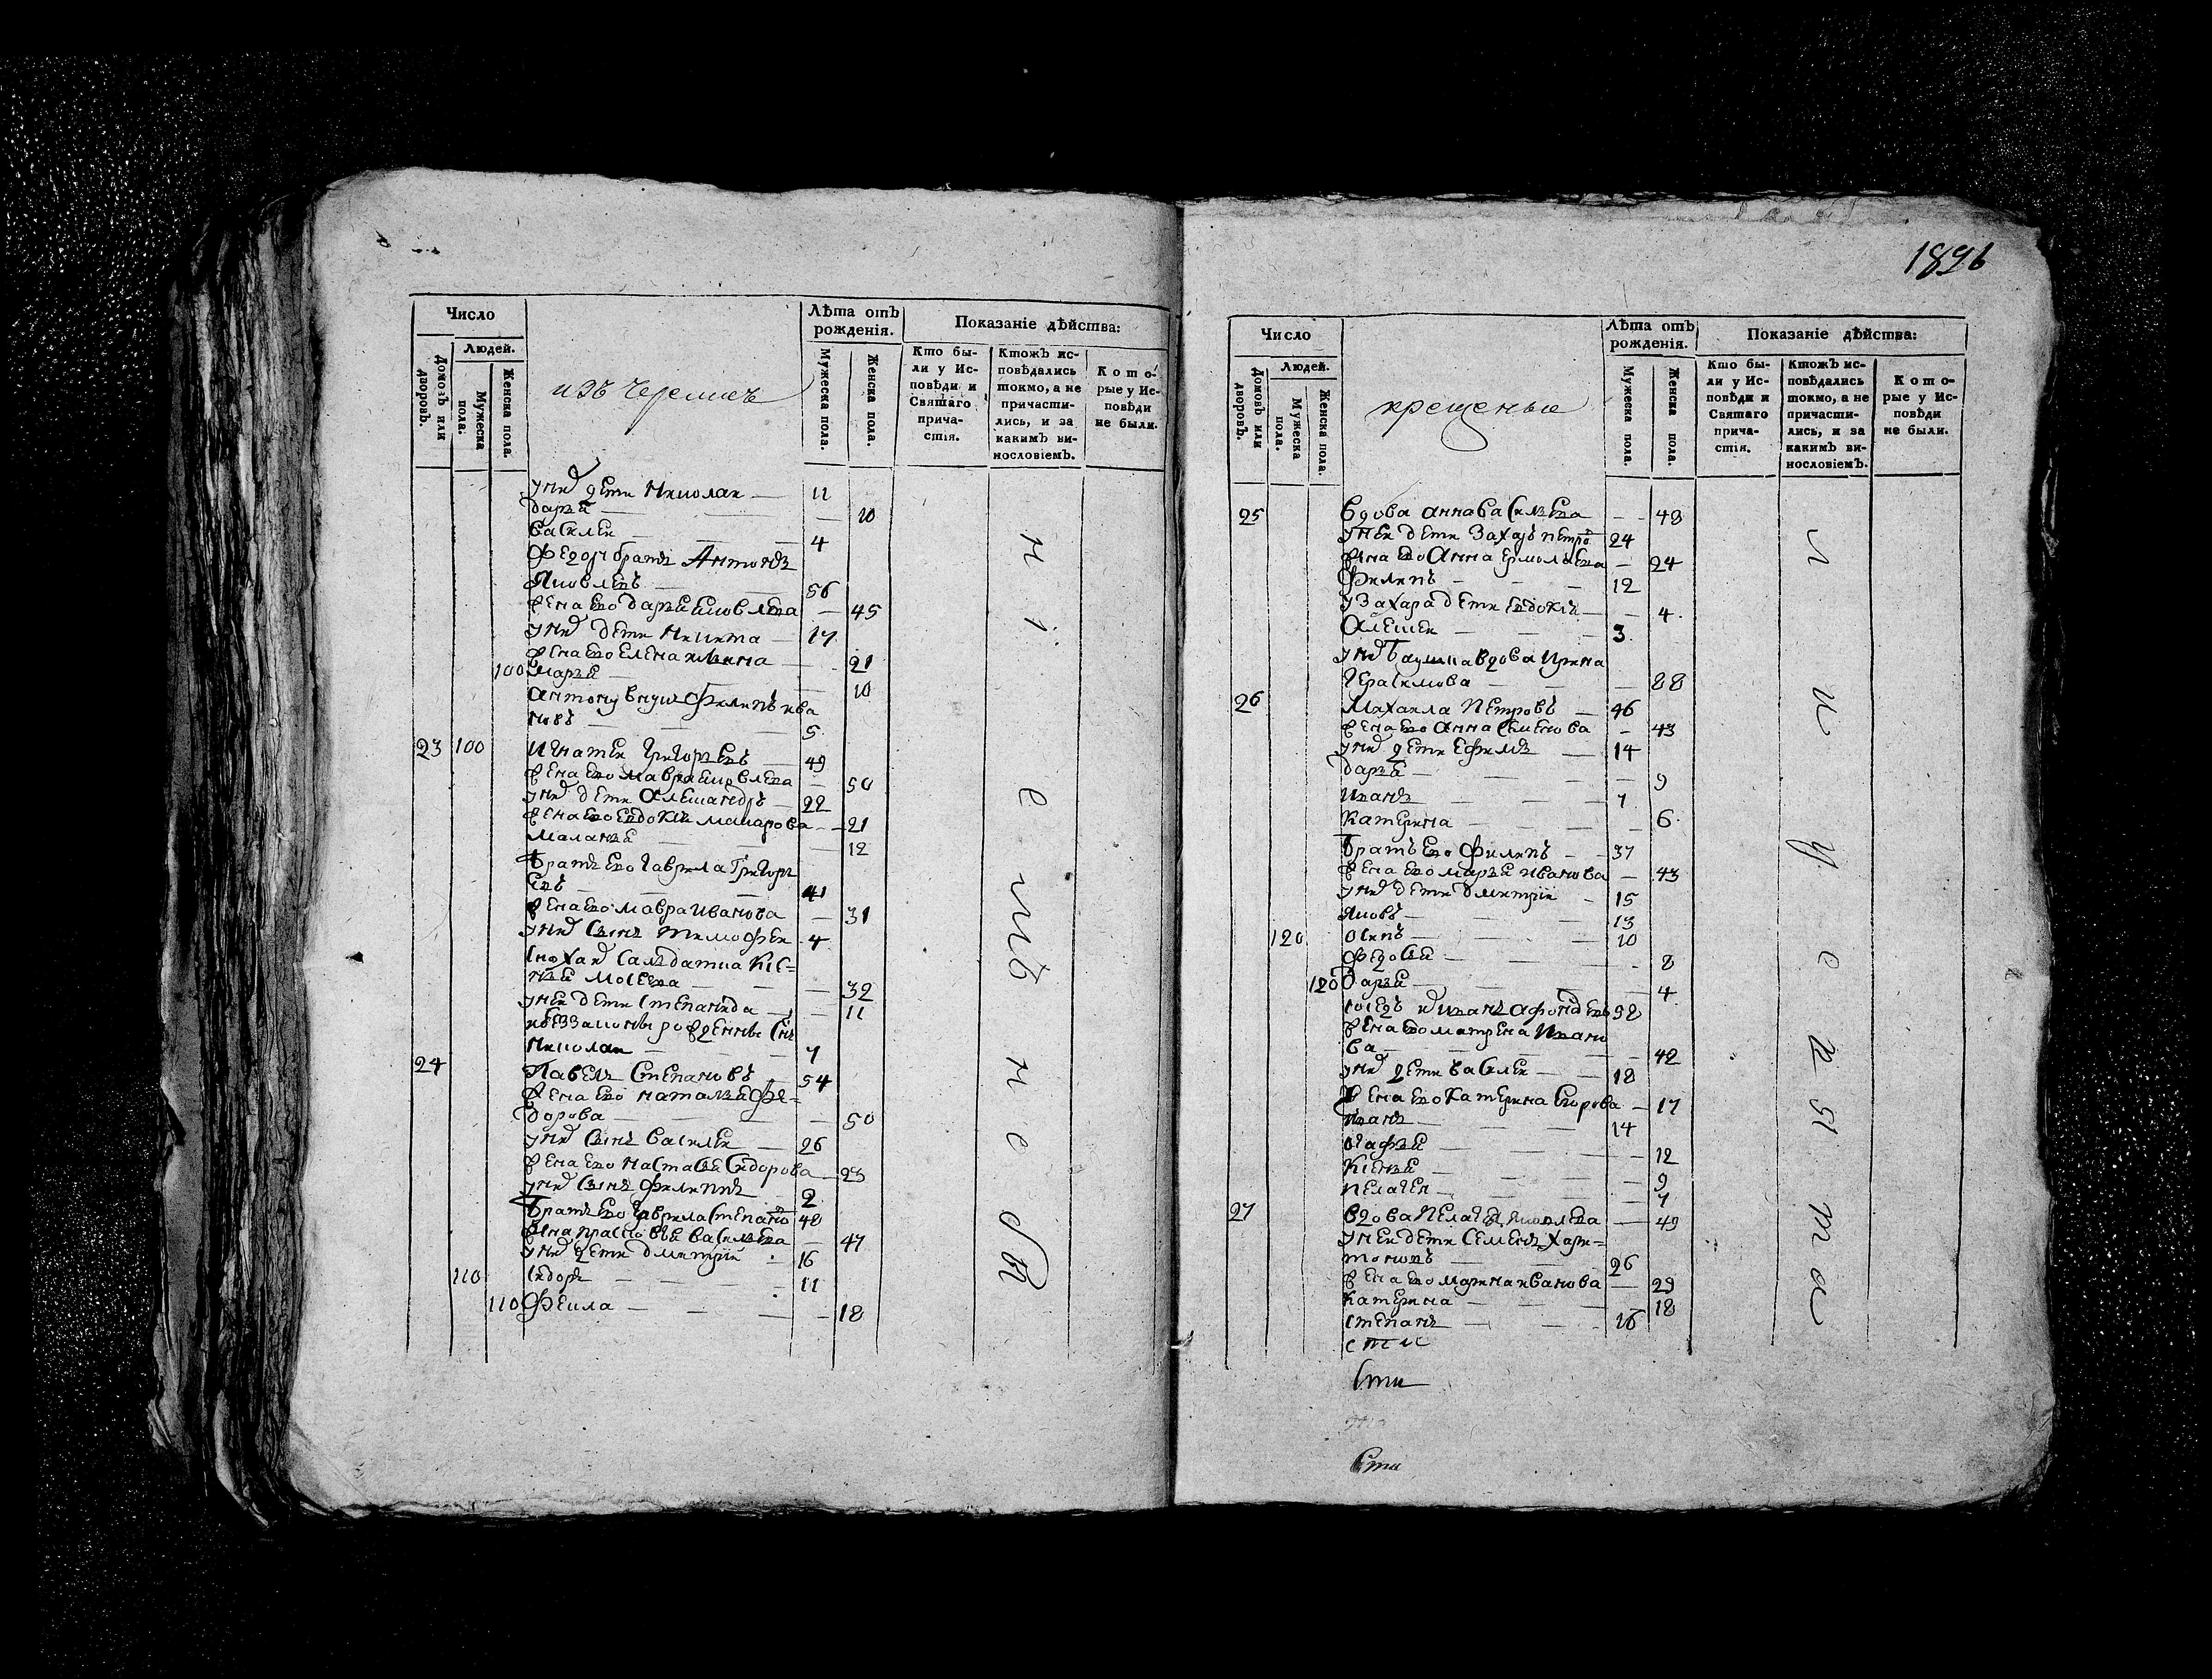 Число
Людей.
Домовъ или дворовъ.
Мужеска пола.
Женска пола.
изъ черемис
Лѣта отъ рожденія.
Мужеска пола.
Женска пола.
Показаніе дѣйства:
Кто бы-
ли у Ис-
повѣди и
Святаго
прича-
стія.
Ктожъ ис-
повѣдались
токмо, а не
причасти-
лись, и за
какимъ ви-
нословіемъ.
Кото-
рые у Ис-
повѣди
не были.
У них дети Николаи — 11
Дарья — 10
Василеи — 4
Федору братъ Антонъ
Яковлевъ — 56
Жена ево Дарья Яковлева — 45
У них дети Никита — 17
Жена ево Елена — 21
100 Марья — 10
Антону внукъ Филипъ Ива
новъ — 5
23 100 Игнатеи Григорьевъ — 49
Жена ево Мавра Яковлева — 50
У них дети Александръ — 22
Жена ево Евдокия Макарова — 21
Маланья — 12
Братъ ево Гаврила Григорь
евъ — 41
Жена ево Мавра Иванова — 31
У них сынъ Тимофеи — 4
Сноха их салдатка Ксе=
нья Мосеева — 32
У неи дети Степанида — 11
и беззаконно рожденны сынъ
Николаи — 7
24 Павелъ Степановъ — 54
Жена ево Наталья Фе=
дорова — 50
У них сынъ Василеи — 26
Жена ево Настасья Сидорова — 23
У них сынъ Филиппъ — 2
Братъ ево Гаврила Степано — 48
Жена Прасковья Васильева — 47
У них дети Дмитрии — 16
110 Сидоръ — 11
110 Фекла — 18
1896
Число
Людей.
Домовъ или дворовъ.
Мужеска пола.
Женска пола.
крещены
Лѣта отъ рожденія.
Мужеска пола.
Женска пола.
Показаніе дѣйства:
Кто бы-
ли у Ис-
повѣди и
Святаго
прича-
стія.
Ктожъ ис-
повѣдались
токмо, а не
причасти-
лись, и за
какимъ ви-
нословіемъ.
Кото-
рые у Ис-
повѣди
не были.
25 Вдова Анна Васильева — 48
У неи дети Захаръ Петро — 24
Жена ево Анна Ермолаева — 24
Филипъ — 12
У Захара дети Евдокия — 4
Алексеи — 3
У них баушка вдова Ирина
Герасимова — 88
26 Михаила Петровъ — 46
Жена ево Анна Семенова — 43
У них дети Ефимъ — 14
Дарья — 9
Иванъ — 7
Катерина — 6
Братъ ево Филипъ — 37
Жена ево Марья Иванова — 43
У них дети Дмитрии — 15
Яковъ — 13
120 Осипъ — 10
Федосья — 8
120 Дарья — 4
Соседъ их Иванъ Афонасьевъ 52
Жена ево Матрена Ивано
ва — 42
У них дети Василеи — 18
Жена ево Катерина Егорова — 17
Иванъ — 14
Агафья — 12
Ксенья — 9
Пелагея — 7
27 Вдова Пелагея Яковлева — 49
У неи дети Семенъ Хари=
тоновъ — 26
Жена ево Марина Иванова — 29
Катерина — 18
Степанъ — 16